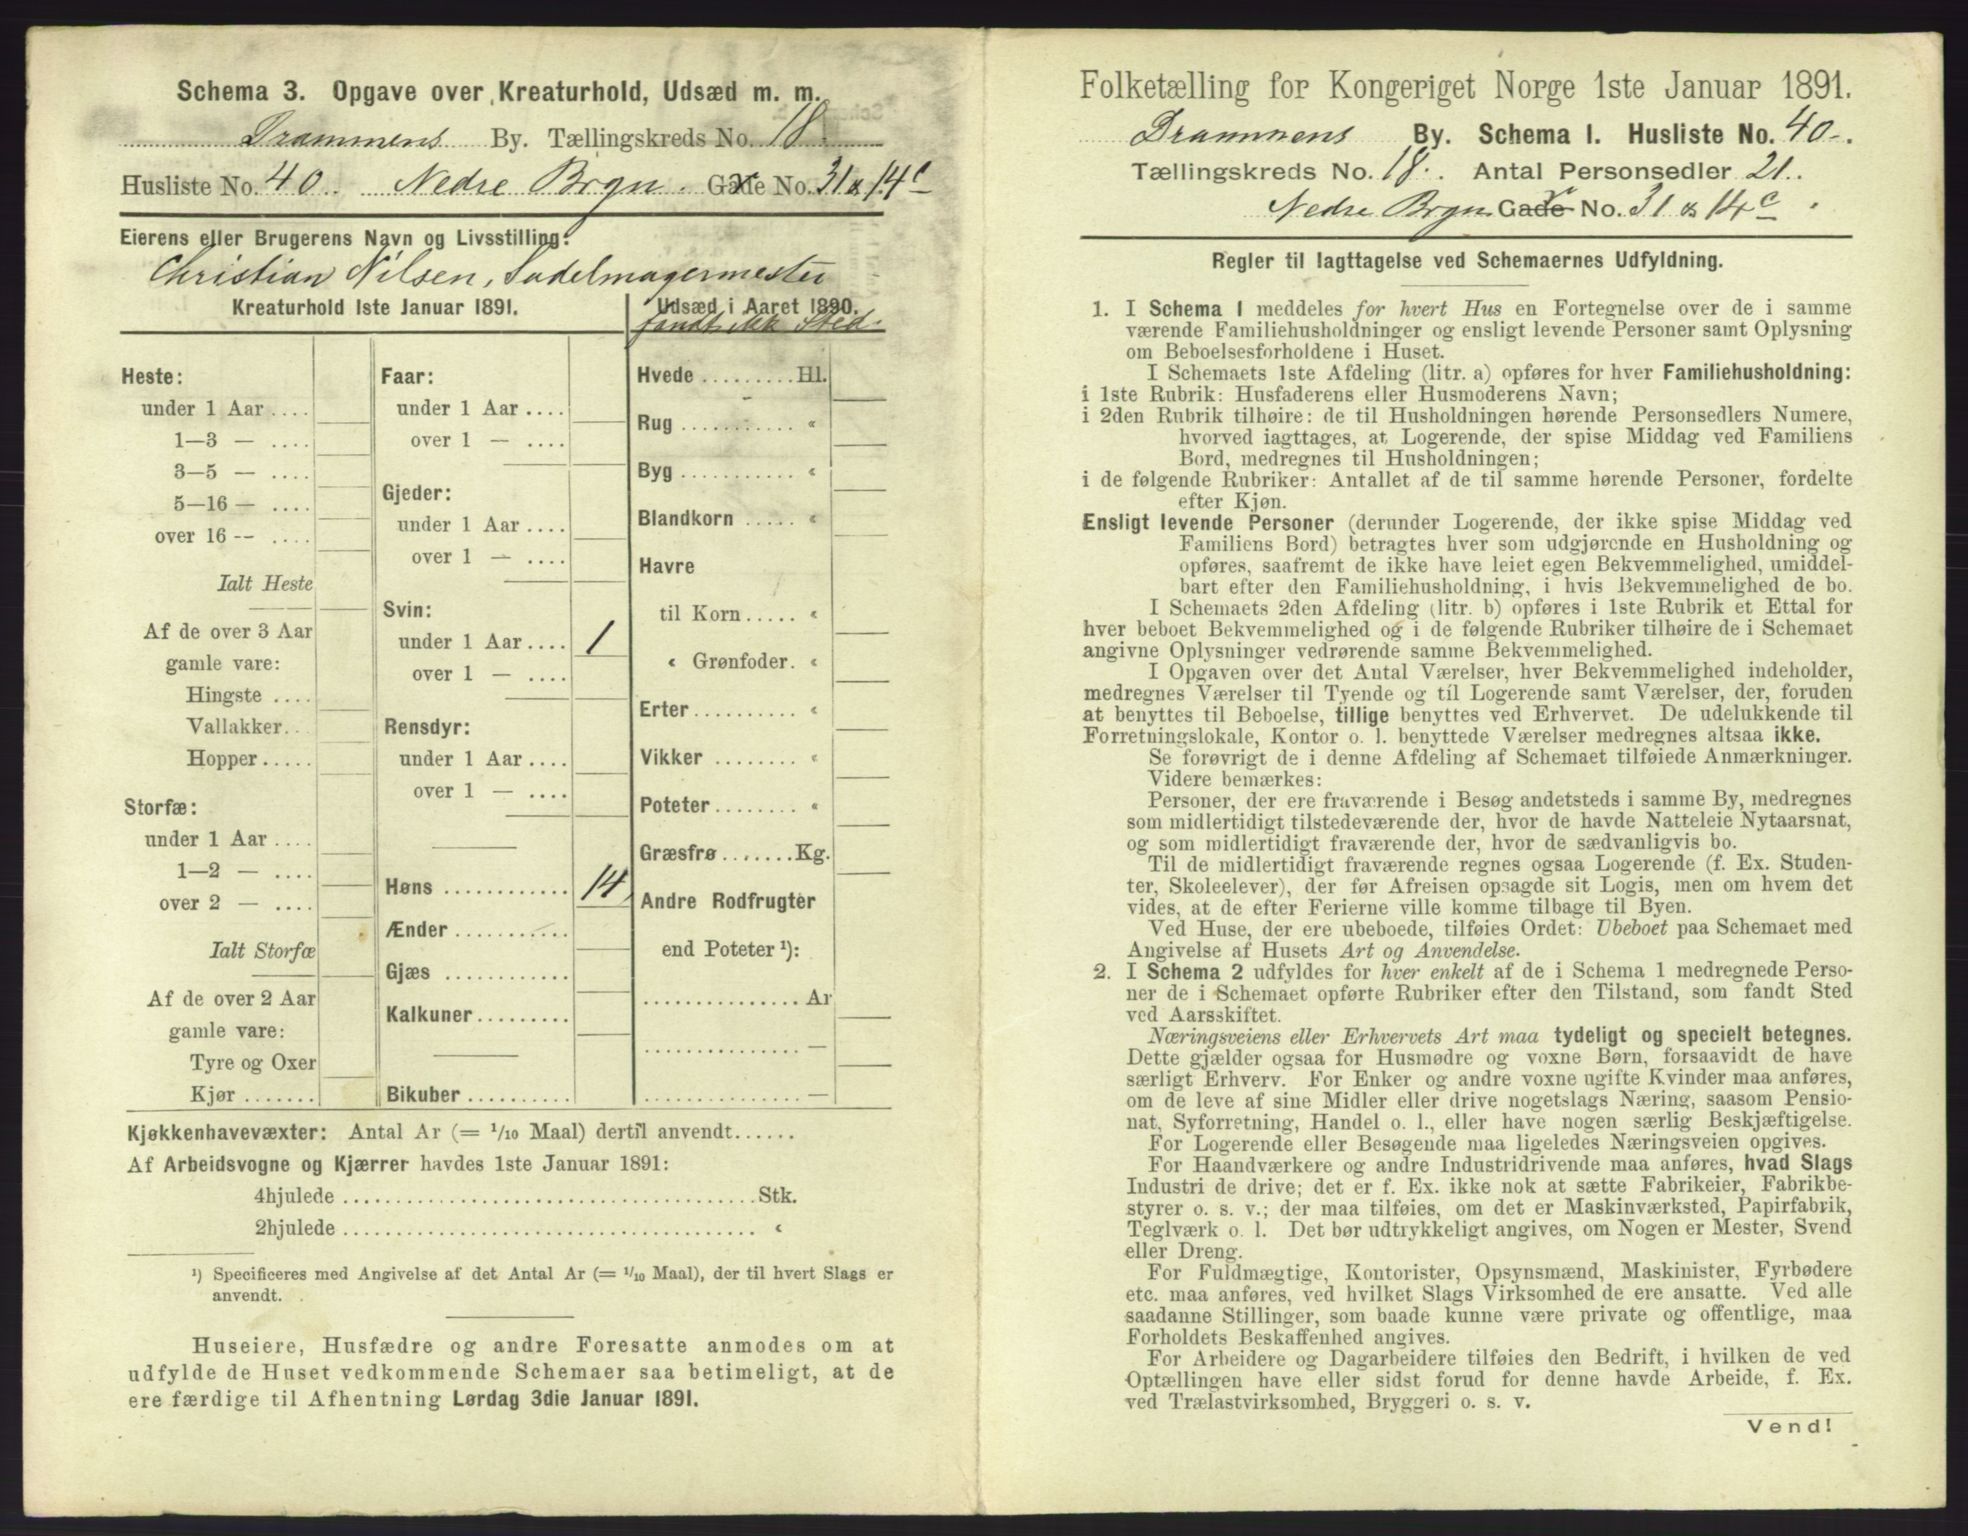 Schema 3. Opgave over Kreaturhold, Udsæd m. m.
Drammens By. Tællingskreds No. 18.
Husliste No. 40. Nedre Brgn. Gade No. 31 & 14c
Eierens eller Brugerens Navn og Livsstilling:
Christian Nilsen, Sadelmagermester
Kreaturhold 1ste Januar 1891.
Udsæd i Aaret 1890.
fandt ikke Sted.
Heste:
under 1 Aar ....
1—3 — ....
3—5 — ....
5—16 — ....
over 16 -- ....
Ialt Heste
Af de over 3 Aar
gamle vare:
Hingste ....
Vallakker...
Hopper.....
Storfæ:
under 1 Aar ....
1—2 — ....
over 2 — ....
Ialt Storfæ
Af de over 2 Aar
gamle vare:
Tyre og Oxer
Kjør .......
Faar:
under 1 Aar ....
over 1 — ....
Gjeder:
under 1 Aar ....
over 1 — ....
Svin:
under 1 Aar .... 1
over 1 — ....
Rensdyr:
under 1 Aar ....
over 1 — ....
Høns ............ 14
Ænder ...........
Gjæs ............
Kalkuner.........
Bikuber ..........
Hvede .........Hl.
Rug ........... «
Byg ............ «
Blandkorn ..... «
Havre
til Korn..... «
« Grønfoder. «
Erter.......... «
Vikker ........ «
Poteter........ «
Græsfrø .......Kg.
Andre Rodfrugter
end Poteter ¹):
................ Ar
................ —
................ —
Kjøkkenhavevæxter: Antal Ar (= 1/10 Maal) dertil anvendt......
Af Arbeidsvogne og Kjærrer havdes 1ste Januar 1891:
4hjulede ..........................................Stk.
2hjulede .......................................... «
¹) Specificeres med Angivelse af det Antal Ar (= 1/10 Maal), der til hvert Slags er
anvendt.
Huseiere, Husfædre og andre Foresatte anmodes om at
udfylde de Huset vedkommende Schemaer saa betimeligt, at de
ere færdige til Afhentning Lørdag 3die Januar 1891.
Folketælling for Kongeriget Norge 1ste Januar 1891.
Drammens By. Schema I. Husliste No. 40.
Tællingskreds No. 18. Antal Personsedler 21.
Nedre Brgn Gade No. 31 & 14c
Regler til Iagttagelse ved Schemaernes Udfyldning.
1. I Schema I meddeles for hvert Hus en Fortegnelse over de i samme
værende Familiehusholdninger og ensligt levende Personer samt Oplysning
om Beboelsesforholdene i Huset.
I Schemaets 1ste Afdeling (litr. a) opføres for hver Familiehusholdning:
i 1ste Rubrik: Husfaderens eller Husmoderens Navn;
i 2den Rubrik tilhøire: de til Husholdningen hørende Personsedlers Numere,
hvorved iagttages, at Logerende, der spise Middag ved Familiens
Bord, medregnes til Husholdningen;
i de følgende Rubriker: Antallet af de til samme hørende Personer, fordelte
efter Kjøn.
Ensligt levende Personer (derunder Logerende, der ikke spise Middag ved
Familiens Bord) betragtes hver som udgjørende en Husholdning og
opføres, saafremt de ikke have leiet egen Bekvemmelighed, umiddel-
bart efter den Familiehusholdning, i hvis Bekvemmelighed de bo.
I Schemaets 2den Afdeling (litr. b) opføres i 1ste Rubrik et Ettal for
hver beboet Bekvemmelighed og i de følgende Rubriker tilhøire de i Schemaet
angivne Oplysninger vedrørende samme Bekvemmelighed.
I Opgaven over det Antal Værelser, hver Bekvemmelighed indeholder,
medregnes Værelser til Tyende og til Logerende samt Værelser, der, foruden
at benyttes til Beboelse, tillige benyttes ved Erhvervet. De udelukkende til
Forretningslokale, Kontor o. l. benyttede Værelser medregnes altsaa ikke.
Se forøvrigt de i denne Afdeling af Schemaet tilføiede Anmærkninger.
Videre bemærkes:
Personer, der ere fraværende i Besøg andetsteds i samme By, medregnes
som midlertidigt tilstedeværende der, hvor de havde Natteleie Nytaarsnat,
og som midlertidigt fraværende der, hvor de sædvanligvis bo.
Til de midlertidigt fraværende regnes ogsaa Logerende (f. Ex. Studen-
ter, Skoleelever), der før Afreisen opsagde sit Logis, men om hvem det
vides, at de efter Ferierne ville komme tilbage til Byen.
Ved Huse, der ere ubeboede, tilføies Ordet: Ubeboet paa Schemaet med
Angivelse af Husets Art og Anvendelse.
2. I Schema 2 udfyldes for hver enkelt af de i Schema 1 medregnede Perso-
ner de i Schemaet opførte Rubriker efter den Tilstand, som fandt Sted
ved Aarsskiftet.
Næringsveiens eller Erhvervets Art maa tydeligt og specielt betegnes.
Dette gjælder ogsaa for Husmødre og voxne Børn, forsaavidt de have
særligt Erhverv. For Enker og andre voxne ugifte Kvinder maa anføres,
om de leve af sine Midler eller drive nogetslags Næring, saasom Pensio-
nat, Syforretning, Handel o. l., eller have nogen særlig Beskjæftigelse.
For Logerende eller Besøgende maa ligeledes Næringsveien opgives.
For Haandværkere og andre Industridrivende maa anføres, hvad Slags
Industri de drive; det er f. Ex. ikke nok at sætte Fabrikeier, Fabrikbe-
styrer o. s. v.; der maa tilføies, om det er Maskinværksted, Papirfabrik,
Teglværk o. l. Det bør udtrykkeligt angives, om Nogen er Mester, Svend
eller Dreng.
For Fuldmægtige, Kontorister, Opsynsmænd, Maskinister, Fyrbødere
etc. maa anføres, ved hvilket Slags Virksomhed de ere ansatte. Ved alle
saadanne Stillinger, som baade kunne være private og offentlige, maa
Forholdets Beskaffenhed angives.
For Arbeidere og Dagarbeidere tilføies den Bedrift, i hvilken de ved
Optællingen have eller sidst forud for denne havde Arbeide, f. Ex.
ved Trælastvirksomhed, Bryggeri o. s. v.
Vend!